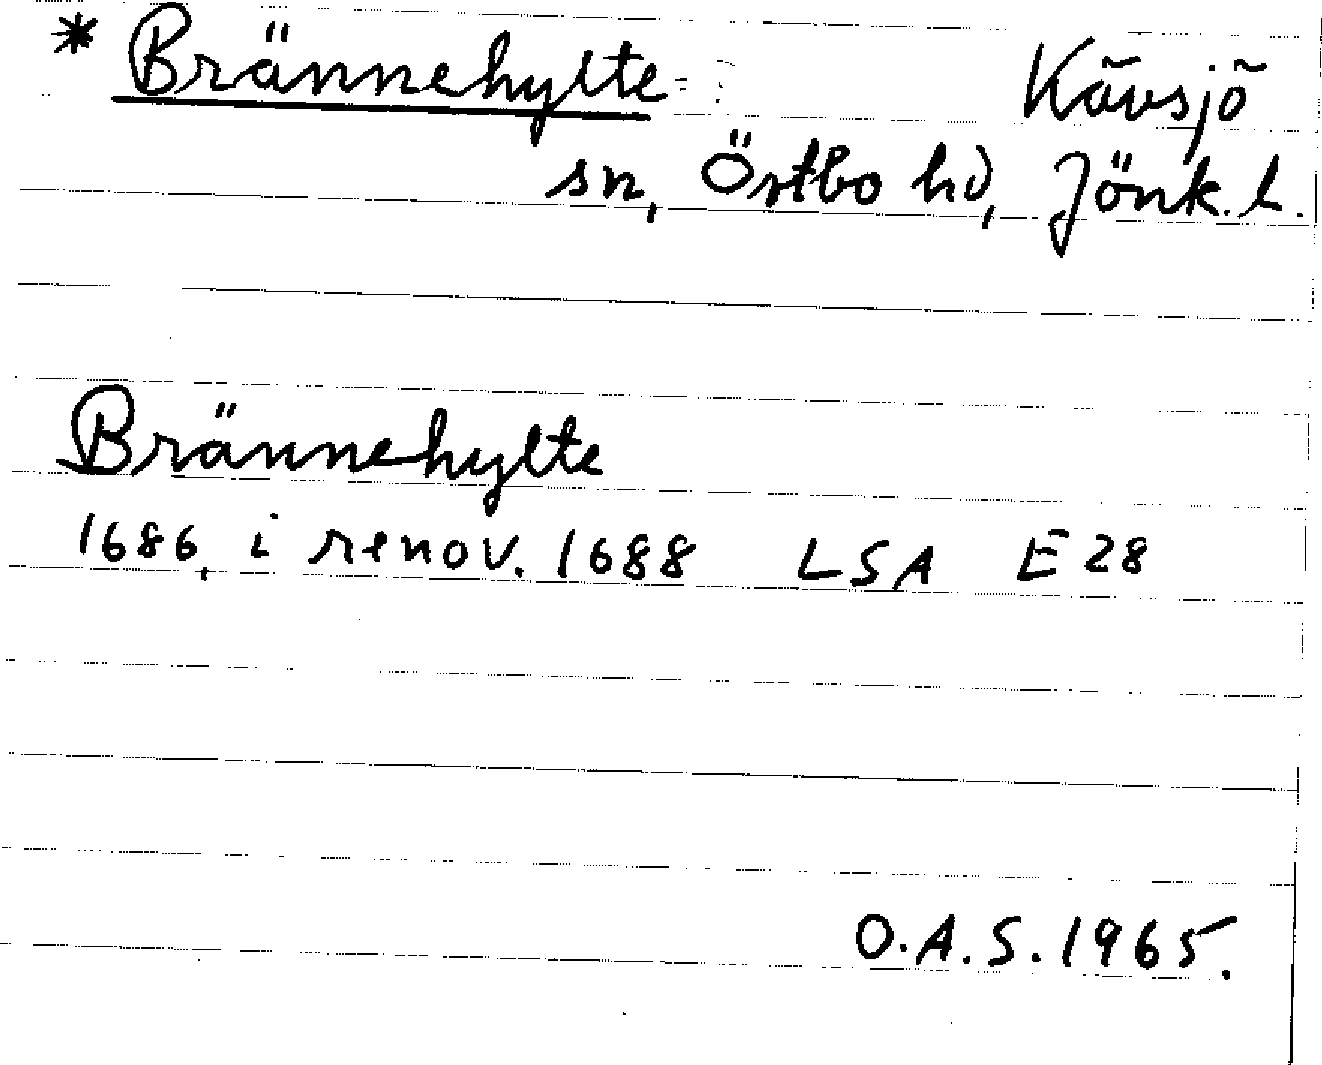 * Brännehylte Kävsjö
sn, Östbo hd, Jönk. l.
Brännehylte
1686, i renov. 1688 LSA E28
O.A.S. 1965.